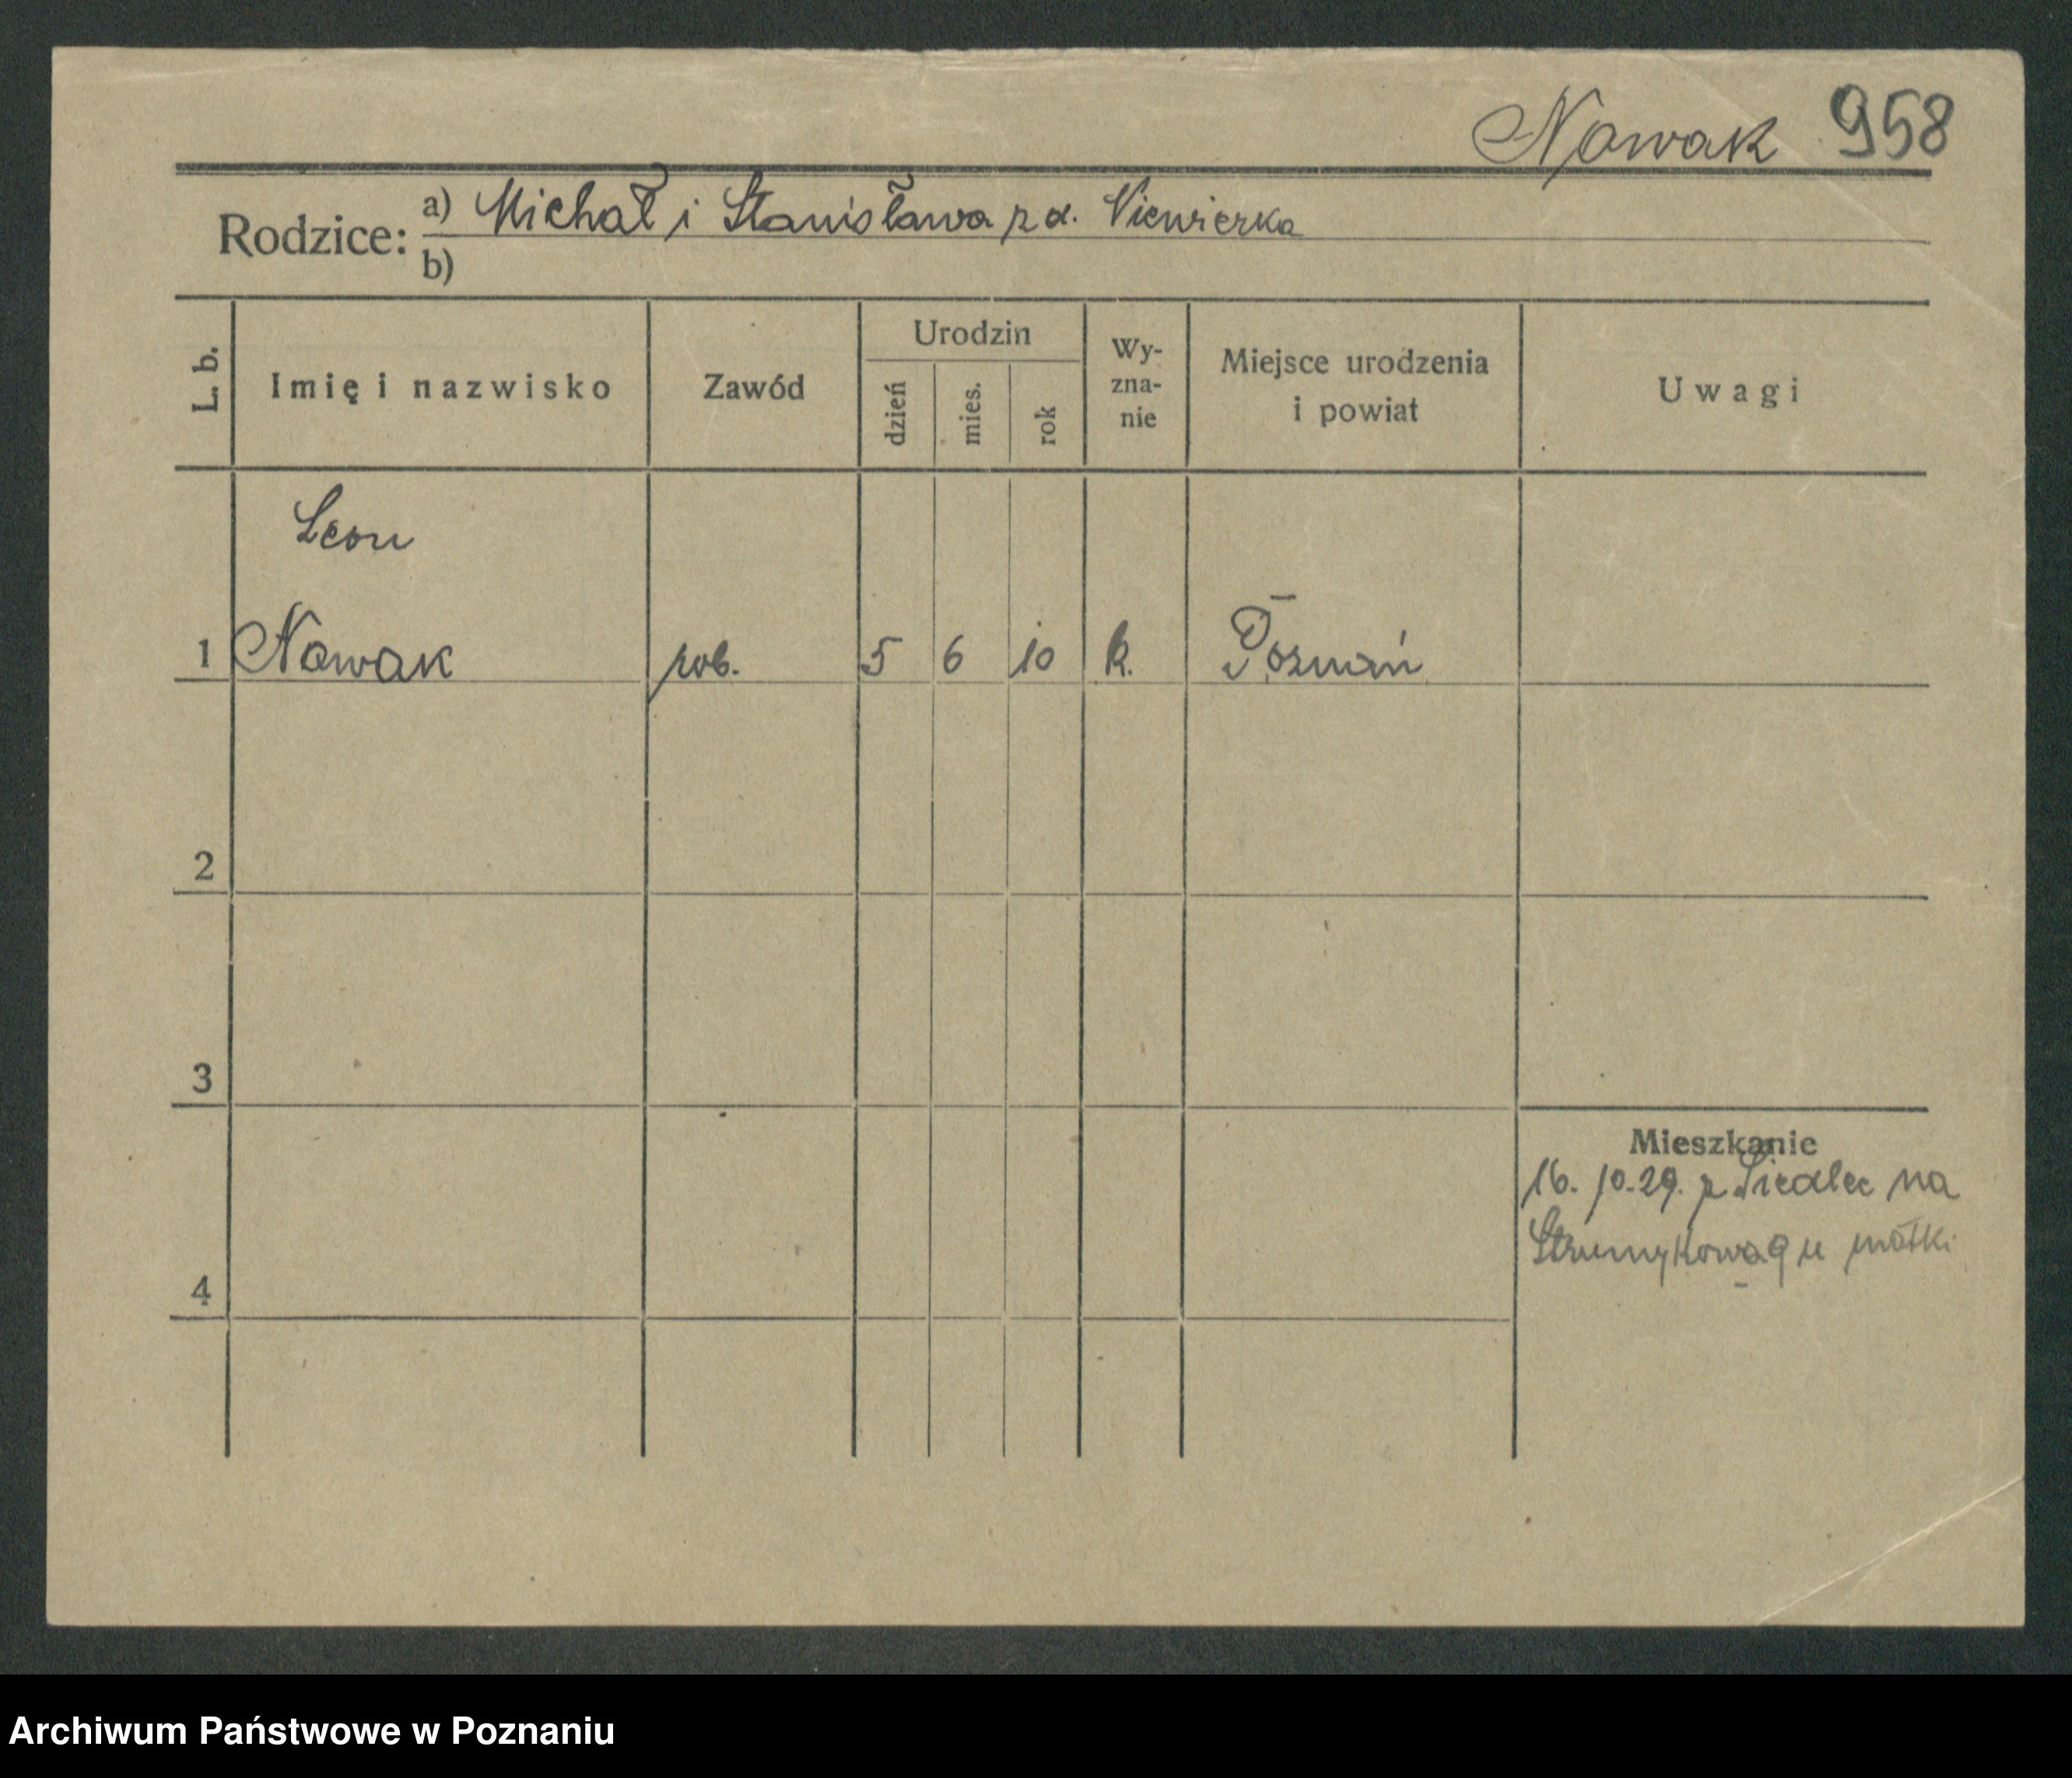 Nowak 958
Rodzice: a) Michał i Stanisława z d. Niewierka
b)
L. b. Imię i nazwisko Zawód Urodzin dzień mies. rok Wy-zna-nie Miejsce urodzenia i powiat Uwagi
Leon
1 Nowak rob. 5 6 10 k. Poznań
2
3
Mieszkanie
16. 10. 29. z Siedlec na
Strumykowa 9 u matki
4
Archiwum Państwowe w Poznaniu